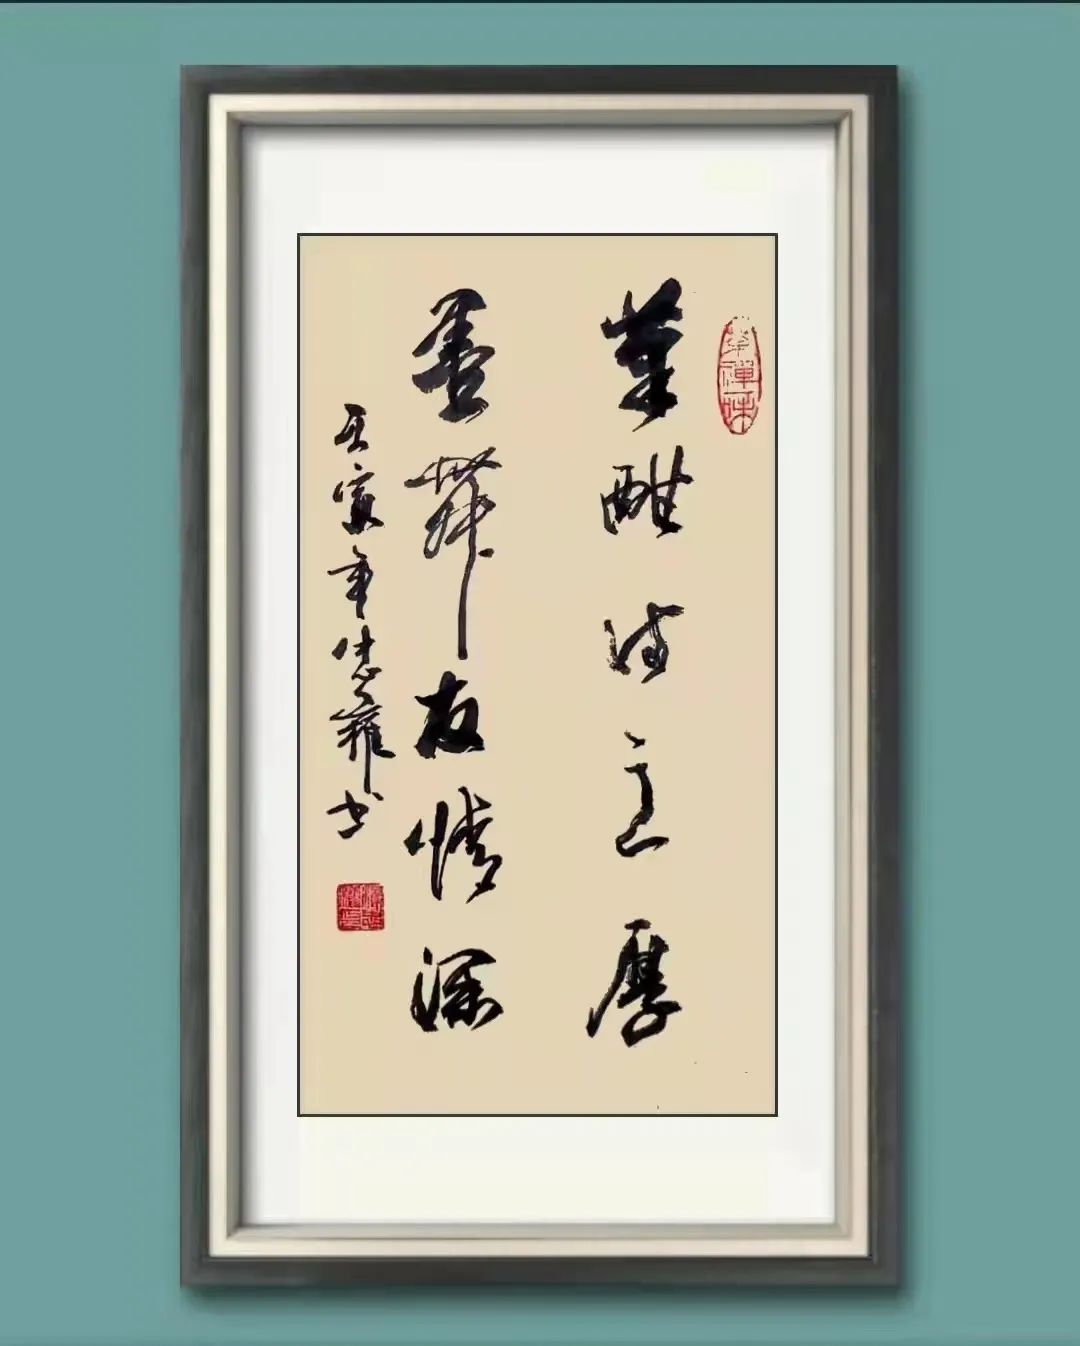 茶禪味
筆酣诗意厚
墨舞友情深
壬寅年 書